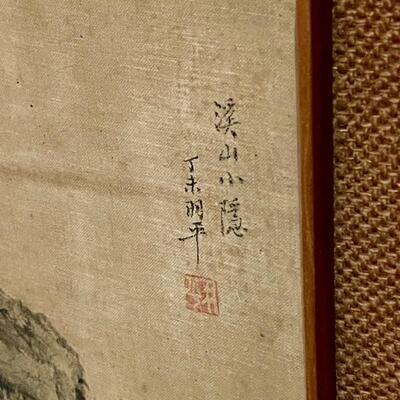 溪山小隱
丁未明平